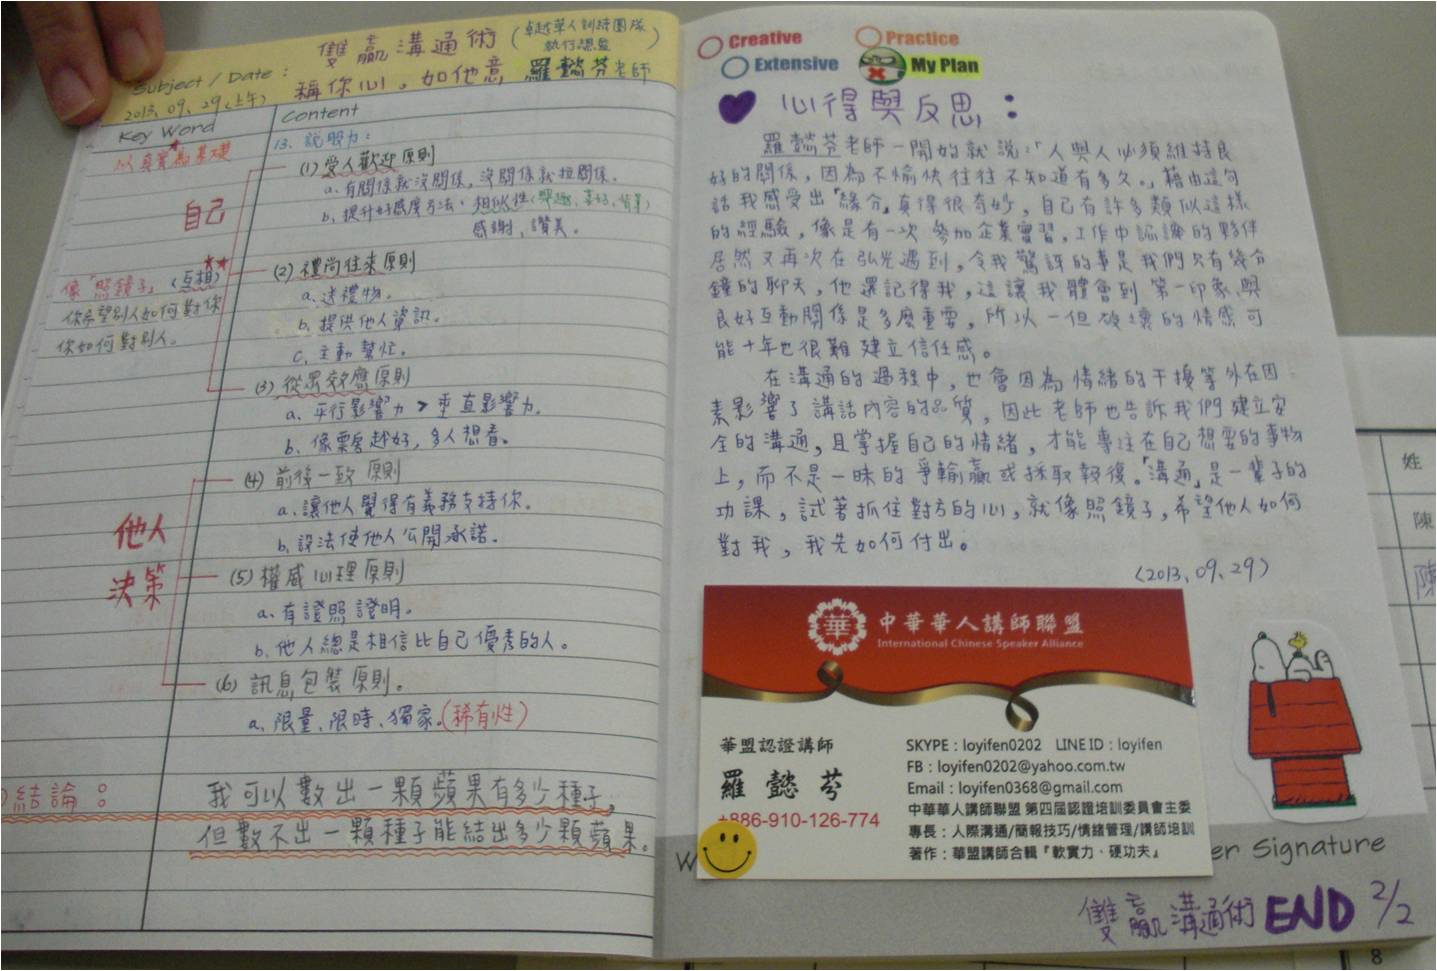 雙贏溝通術
(卓越華人訓練團隊
執行總監)
Subject / Date :
稱你心。如他意 羅懿芬老師
2013、09、29(上午)
Key Word
Content
以真實為基礎
13、說服力：
(1) 受人歡迎原則
a、有關係就沒關係，沒關係就拉關係。
b、提升好感度方法。相似性(興趣、喜好、背景)
感謝、讚美。
自己
(2) 禮尚往來原則
a、送禮物。
b、提供他人資訊。
c、主動幫忙。
像「照鏡子」(互相)
你希望別人如何對你
你如何對別人。
(3) 從眾效應原則
a、平行影響力 > 垂直影響力。
b、像票房越好，多人想看。
(4) 前後一致原則
a、讓他人覺得有義務支持你。
b、設法使他人公開承諾。
他人
決策
(5) 權威心理原則
a、有證照證明。
b、他人總是相信比自己優秀的人。
(6) 訊息包裝原則。
a、限量、限時、獨家。(稀有性)
結論：
我可以數出一顆蘋果有多少種子，
但數不出一顆種子能結出多少顆蘋果。
Creative
Practice
Extensive
My Plan
心得與反思：
羅懿芬老師一開始就說：「人與人必須維持良
好的關係，因為不愉快往往不知道有多久。」藉由這句
話我感受出「緣分」真得很奇妙，自己有許多類似這樣
的經驗，像是有一次參加企業實習，工作中認識的夥伴
居然又再次在弘光遇到，令我驚訝的事是我們只有幾分
鐘的聊天，他還記得我，這讓我體會到第一印象與
良好互動關係是多麼重要，所以一但破壞的情感可
能十年也很難建立信任感。
在溝通的過程中，也會因為情緒的干擾等外在因
素影響了講話內容的品質，因此老師也告訴我們建立安
全的溝通，且掌握自己的情緒，才能專注在自己想要的事物
上，而不是一昧的爭輸贏或採取報復。「溝通」是一輩子的
功課，試著抓住對方的心，就像照鏡子，希望他人如何
對我，我先如何付出。
(2013、09、29)
華
中華華人講師聯盟
International Chinese Speaker Alliance
華盟認證講師
羅懿芬
+886-910-126-774
SKYPE：loyifen0202 LINE ID：loyifen
FB：loyifen0202@yahoo.com.tw
Email：loyifen0368@gmail.com
中華華人講師聯盟 第四屆認證培訓委員會主委
專長：人際溝通/簡報技巧/情緒管理/講師培訓
著作：華盟講師合輯『軟實力、硬功夫』
er Signature
雙贏溝通術 END 2/2
姓
陳
陳
8